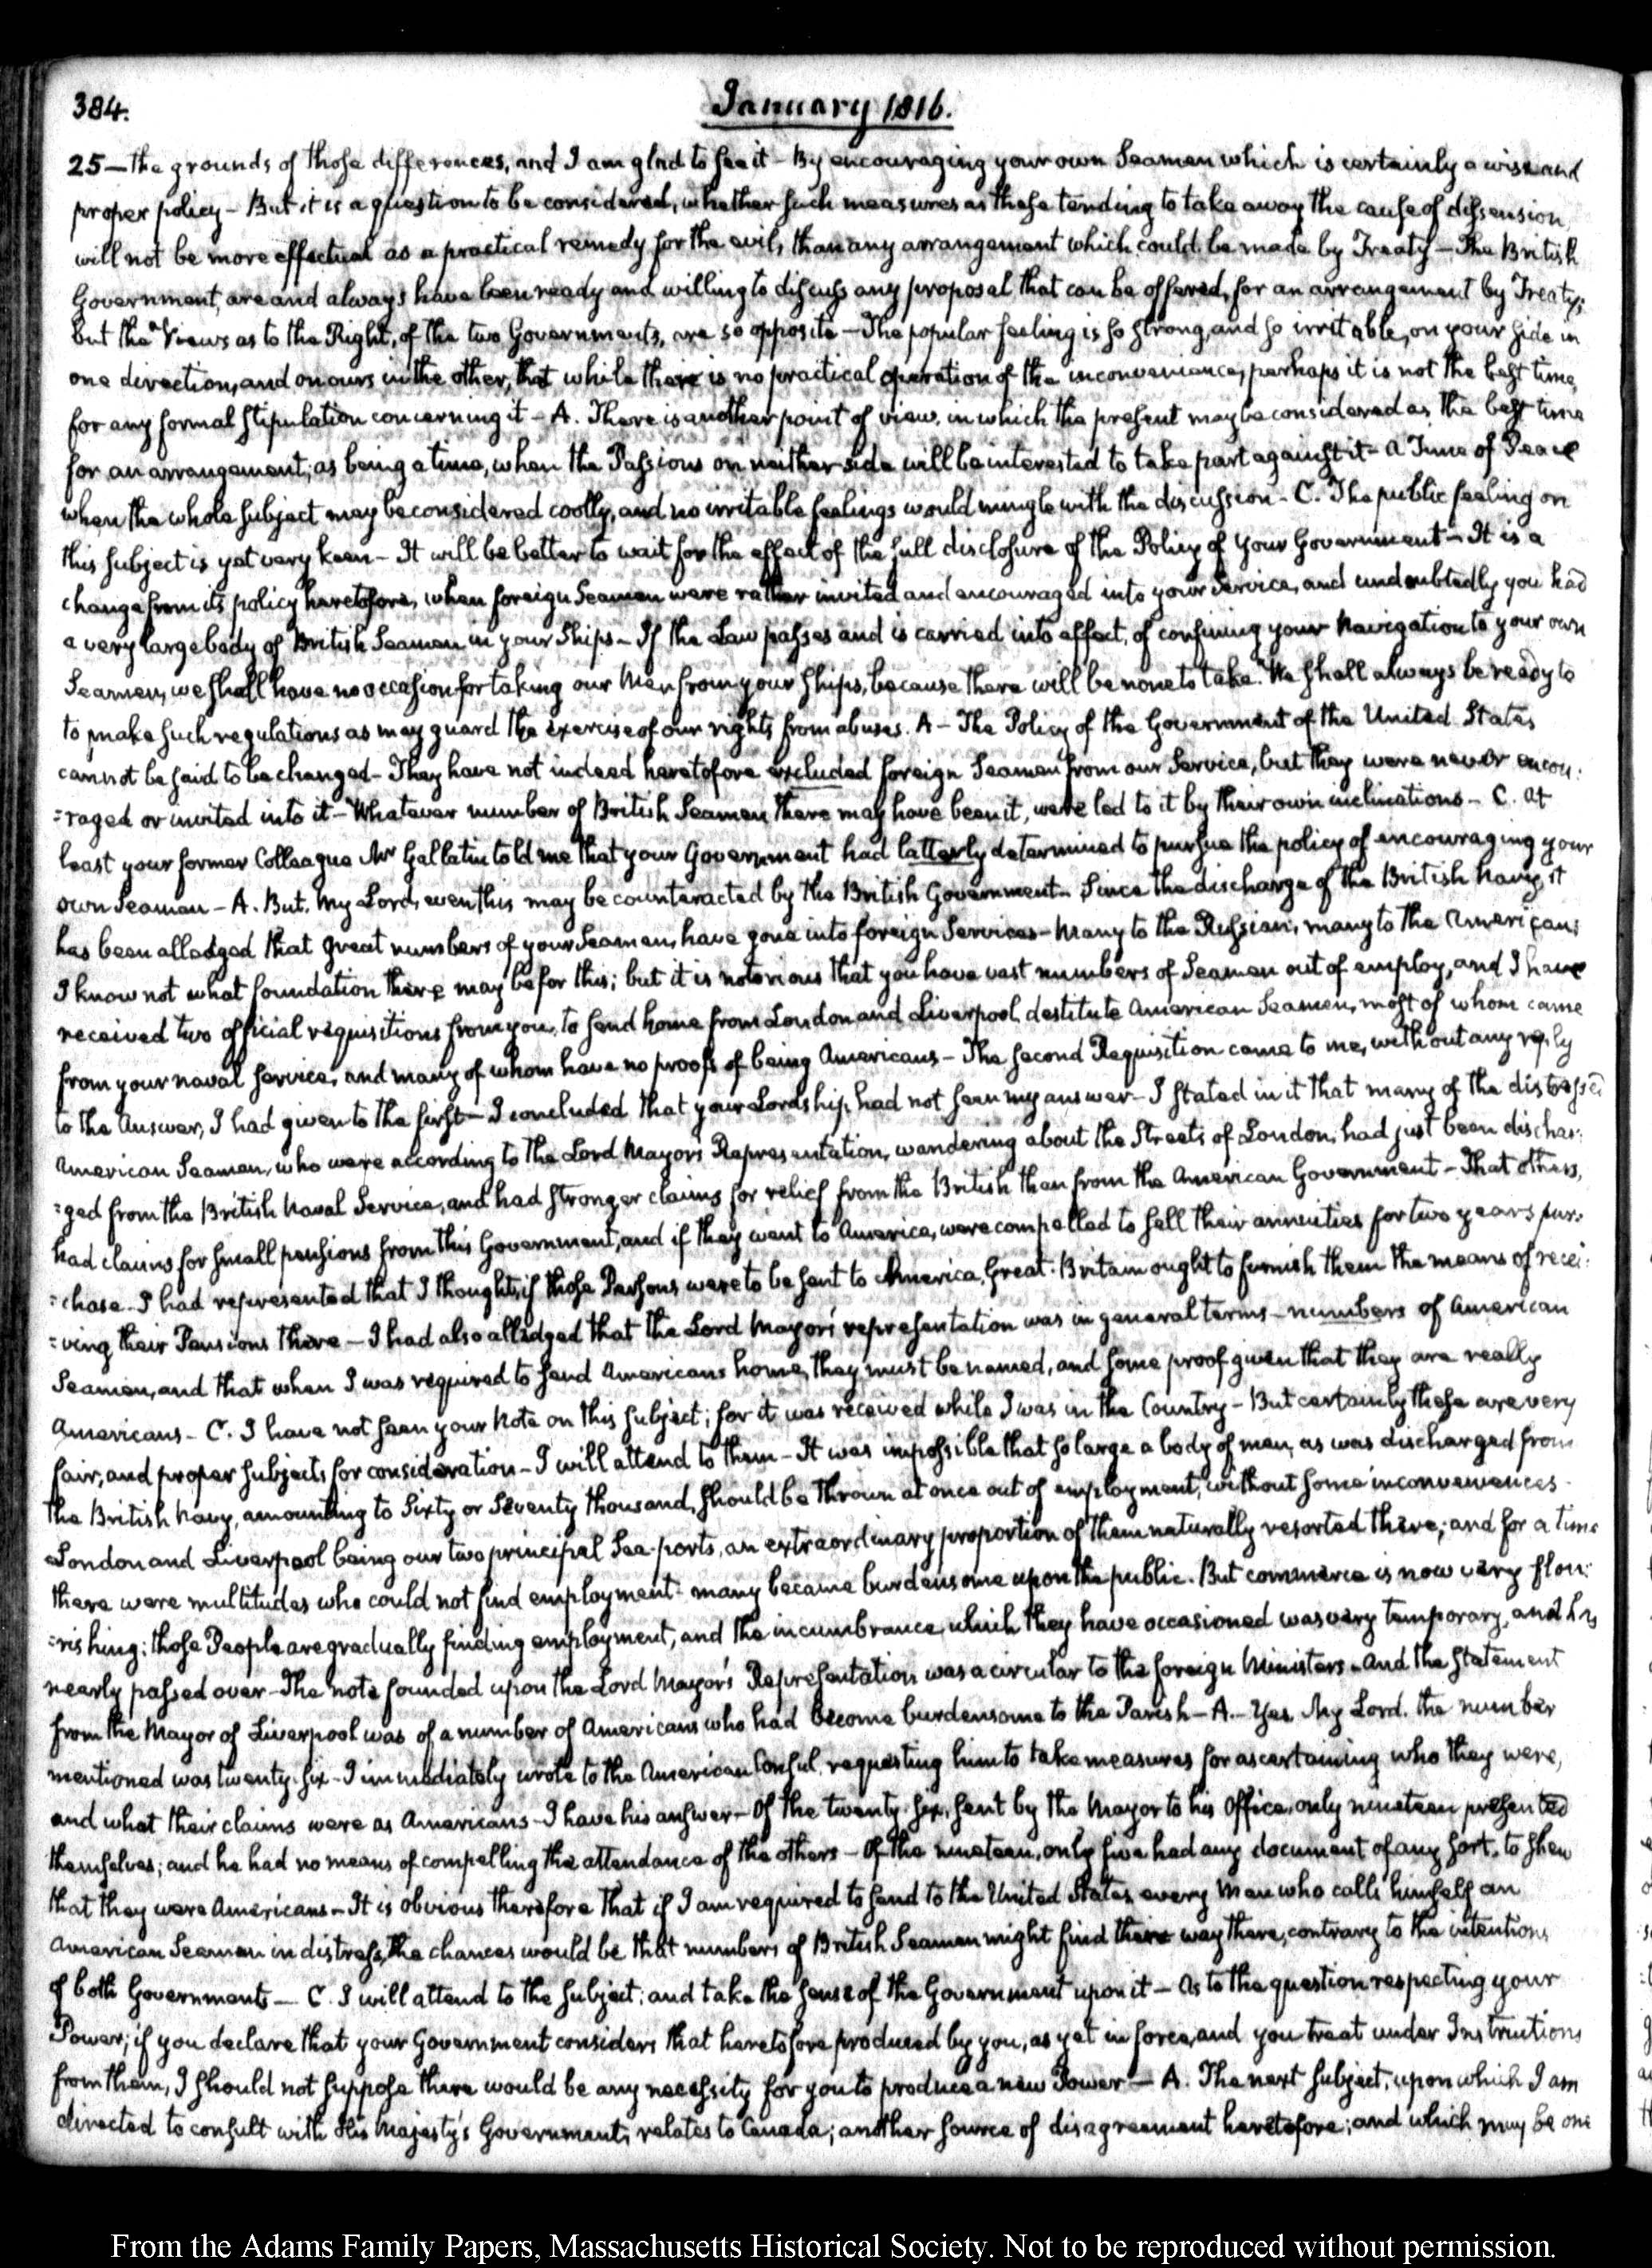 384.
January 1816.
25—the grounds of those differences, and I am glad to see it - By encouraging your own Seamen which is certainly a wise and
proper policy - But it is a question to be considered, whether such measures as these tending to take away the cause of dissension,
will not be more effectual as a practical remedy for the evil, than any arrangement which could be made by Treaty - The British
Government, are and always have been ready and willing to discuss any proposal that can be offered, for an arrangement by Treaty;
but the Views as to the Right, of the two Governments, are so opposite - The popular feeling is so strong, and so irritable, on your side in
one direction, and on ours in the other, that while there is no practical operation of the inconvenience, perhaps it is not the best time,
for any formal stipulation concerning it - A. There is another point of view, in which the present may be considered as the best time
for an arrangement; as being a time, when the Passions on neither side will be interested to take part against it - a Time of Peace
when the whole subject may be considered coolly, and no irritable feelings would mingle with the discussion - C. The public feeling on
this subject is yet very keen - It will be better to wait for the effect of the full disclosure of the Policy of your Government - It is a
change from its policy heretofore, when foreign Seamen were rather invited and encouraged into your service, and undoubtedly you had
a very large body of British Seamen in your Ships - If the Law passes and is carried into effect, of confining your Navigation to your own
Seamen, we shall have no occasion for taking our Men from your Ships, because there will be none to take. We shall always be ready to
to make such regulations as may guard the exercise of our rights from abuses. A - The Policy of the Government of the United States
cannot be said to be changed - They have not indeed heretofore excluded foreign Seamen from our Service, but they were never encou:
:raged or invited into it - Whatever number of British Seamen there may have been it, were led to it by their own inclinations - C. At
least your former Colleague Mr Gallatin told me that your Government had latterly determined to pursue the policy of encouraging your
own Seamen - A. But, My Lord, even this may be counteracted by the British Government - Since the discharge of the British Navy, it
has been alledged that great numbers of your Seamen, have gone into foreign Services - Many to the Russian; many to the American;
I know not what foundation there may be for this; but it is notorious that you have vast numbers of Seamen out of employ, and I have
received two official requisitions from you, to send home from London and Liverpool, destitute American Seamen, most of whom came
from your naval service, and many of whom have no proofs of being Americans - The second Requisition came to me, without any reply
to the Answer, I had given to the first - I concluded that your Lordship, had not seen my answer - I stated in it that many of the distressed
American Seamen, who were according to the Lord Mayor's Representation, wandering about the Streets of London, had just been dischar:
:ged from the British Naval Service, and had stronger claims for relief from the British than from the American Government - That others,
had claims for small pensions from this Government, and if they went to America, were compelled to sell their annuities for two years pur:
:chase - I had represented that I thought, if those Persons were to be sent to America, Great-Britain ought to furnish them the means of recei:
:ving their Pensions there - I had also alledged that the Lord Mayor's representation was in general terms - numbers of American
Seamen, and that when I was required to send Americans home, they must be named, and some proof given that they are really
Americans - C. I have not seen your Note on this subject; for it was received while I was in the Country - But certainly these are very
fair, and proper subjects for consideration - I will attend to them - It was impossible that so large a body of men, as was discharged from
the British Navy, amounting to Sixty or Seventy thousand, should be thrown at once out of employment, without some inconveniences -
London and Liverpool being our two principal Sea-ports, an extraordinary proportion of them naturally resorted there; and for a time
there were multitudes who could not find employment - many became burdensome upon the public. But commerce is now very flou:
:rishing; those People are gradually finding employment, and the incumbrance which they have occasioned was very temporary, and has
nearly passed over - The note founded upon the Lord Mayor's Representation was a circular to the foreign Ministers - And the statement
from the Mayor of Liverpool was of a number of Americans who had become burdensome to the Parish - A. - Yes, My Lord. the number
mentioned was twenty-six - I immediately wrote to the American Consul, requesting him to take measures for ascertaining who they were,
and what their claims were as Americans - I have his answer - Of the twenty-six, sent by the Mayor to his Office, only nineteen presented
themselves; and he had no means of compelling the attendance of the others - Of the nineteen, only five had any document of any sort, to shew
that they were Americans - It is obvious therefore that if I am required to send to the United States, every Man who calls himself an
American Seaman in distress, the chances would be that numbers of British Seamen might find their way there, contrary to the intentions
of both Governments - C. I will attend to the subject; and take the sense of the Government upon it - As to the question respecting your
Power; if you declare that your Government considers that heretofore produced by you, as yet in force, and you treat under Instructions
from them, I should not suppose there would be any necessity for you to produce a new Power - A. The next subject, upon which I am
directed to consult with His Majesty's Government, relates to Canada; another source of disagreement heretofore; and which may be one
From the Adams Family Papers, Massachusetts Historical Society. Not to be reproduced without permission.